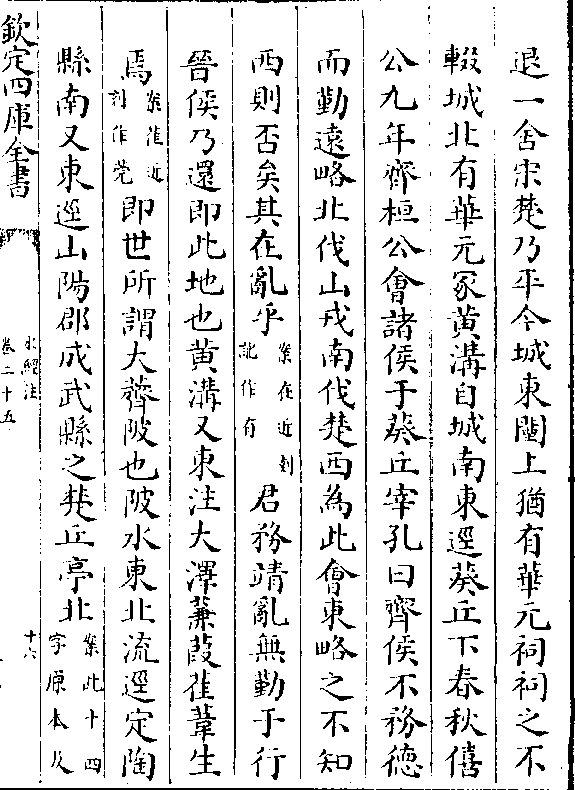 退一舍宋楚乃平今城東闉上猶有華元祠祠之不
輟城北有華元冢黄溝自城南東逕葵丘下春秋僖
公九年齊桓公會諸侯于葵丘宰孔曰齊侯不務德
而勤遠略北伐山戎南伐楚西為此會東略之不知
西則否矣其在亂乎案在近刻訛作有君務靖亂無勤于行
晉侯乃還即此地也黄溝又東注大澤蒹葭萑葦生
焉案萑近刻作莞即世所謂大薺陂也陂水東北流逕定陶
縣南又東逕山陽郡成武縣之楚丘亭北案此十四字原本及
欽定四庫全書
水經注
卷二十五
十六